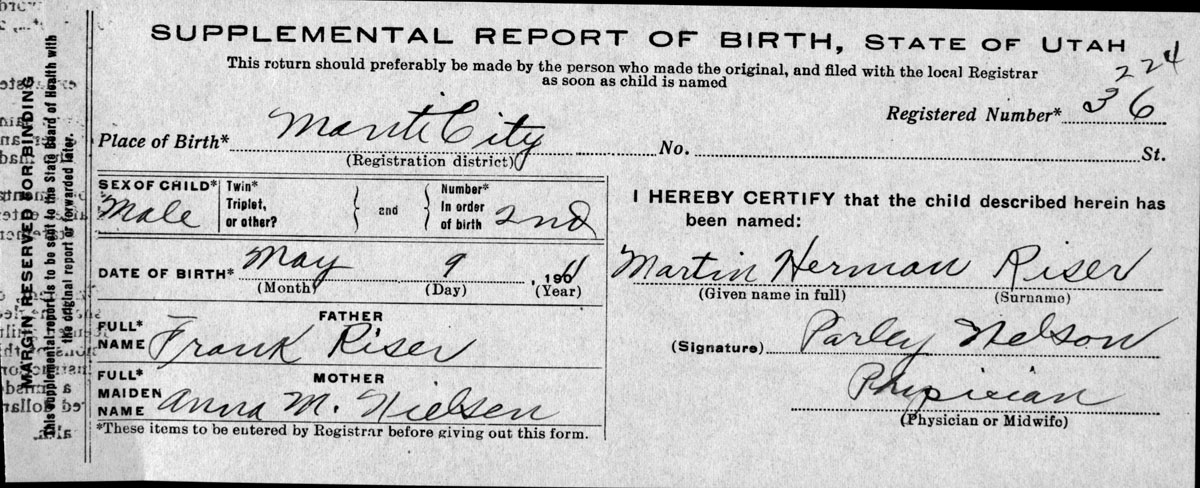 SUPPLEMENTAL REPORT OF BIRTH, STATE OF UTAH
This return should preferably be made by the person who made the original, and filed with the local Registrar
as soon as child is named
224
Registered Number* 36
Place of Birth* Manti City No. St.
(Registration district)
SEX OF CHILD* Male
Twin* Triplet, or other?
and
Number* In order of birth 2nd
DATE OF BIRTH* May 9 , 19
(Month) (Day) (Year)
FATHER
FULL* NAME Frank Riser
MOTHER
FULL* MAIDEN NAME Anna M. Nielsen
*These items to be entered by Registrar before giving out this form.
I HEREBY CERTIFY that the child described herein has
been named:
Martin Herman Riser
(Given name in full) (Surname)
(Signature) Parley Nelson
Physician
(Physician or Midwife)
MARGIN RESERVED FOR BINDING
This supplemental report is to be sent to the State Board of Health with
the original report or forwarded later.